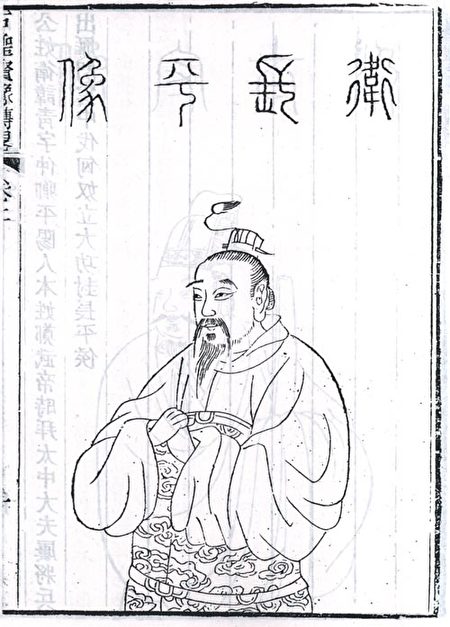 衛長平像
聖賢像傳畧
公姓衛諱青字仲卿平陽人本姓鄭武帝時拜太中大夫屢將兵
出 伐匈奴立大功封長平侯